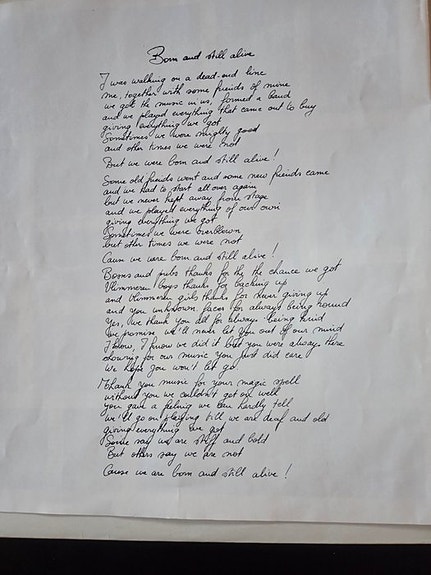 Born and still alive
I was walking on a dead-end line
me, together with some friends of mine
we got the music in us, formed a band
and we played everything that came out to buy
giving everything we got
Sometimes we were mighty good
and other times we were not
But we were born and still alive!
Some old friends went and some new friends came
and we had to start all over again
but we never kept away from stage
and we played everything of our own
giving everything we got
Sometimes we were overblown
but other times we were not
Cause we were born and still alive!
and pubs thanks for the the chance we got
Vlimmeren boys thanks for backing up
and Vlimmeren girls thanks for never giving up
and you unknown faces for always being round
Yes, we thank you all for always being kind
We promise we'll never let you out of our mind
I know, I know we did it but you were always there
showing for our music you just did care
We hope you won't let go
Thank you music for your magic spell
without you we couldn't get on well
You gave a feeling we can hardly tell
We'll go on playing till we are deaf and old
giving everything we got
Some say we are stiff and bold
But others say we are not
Cause we are born and still alive!